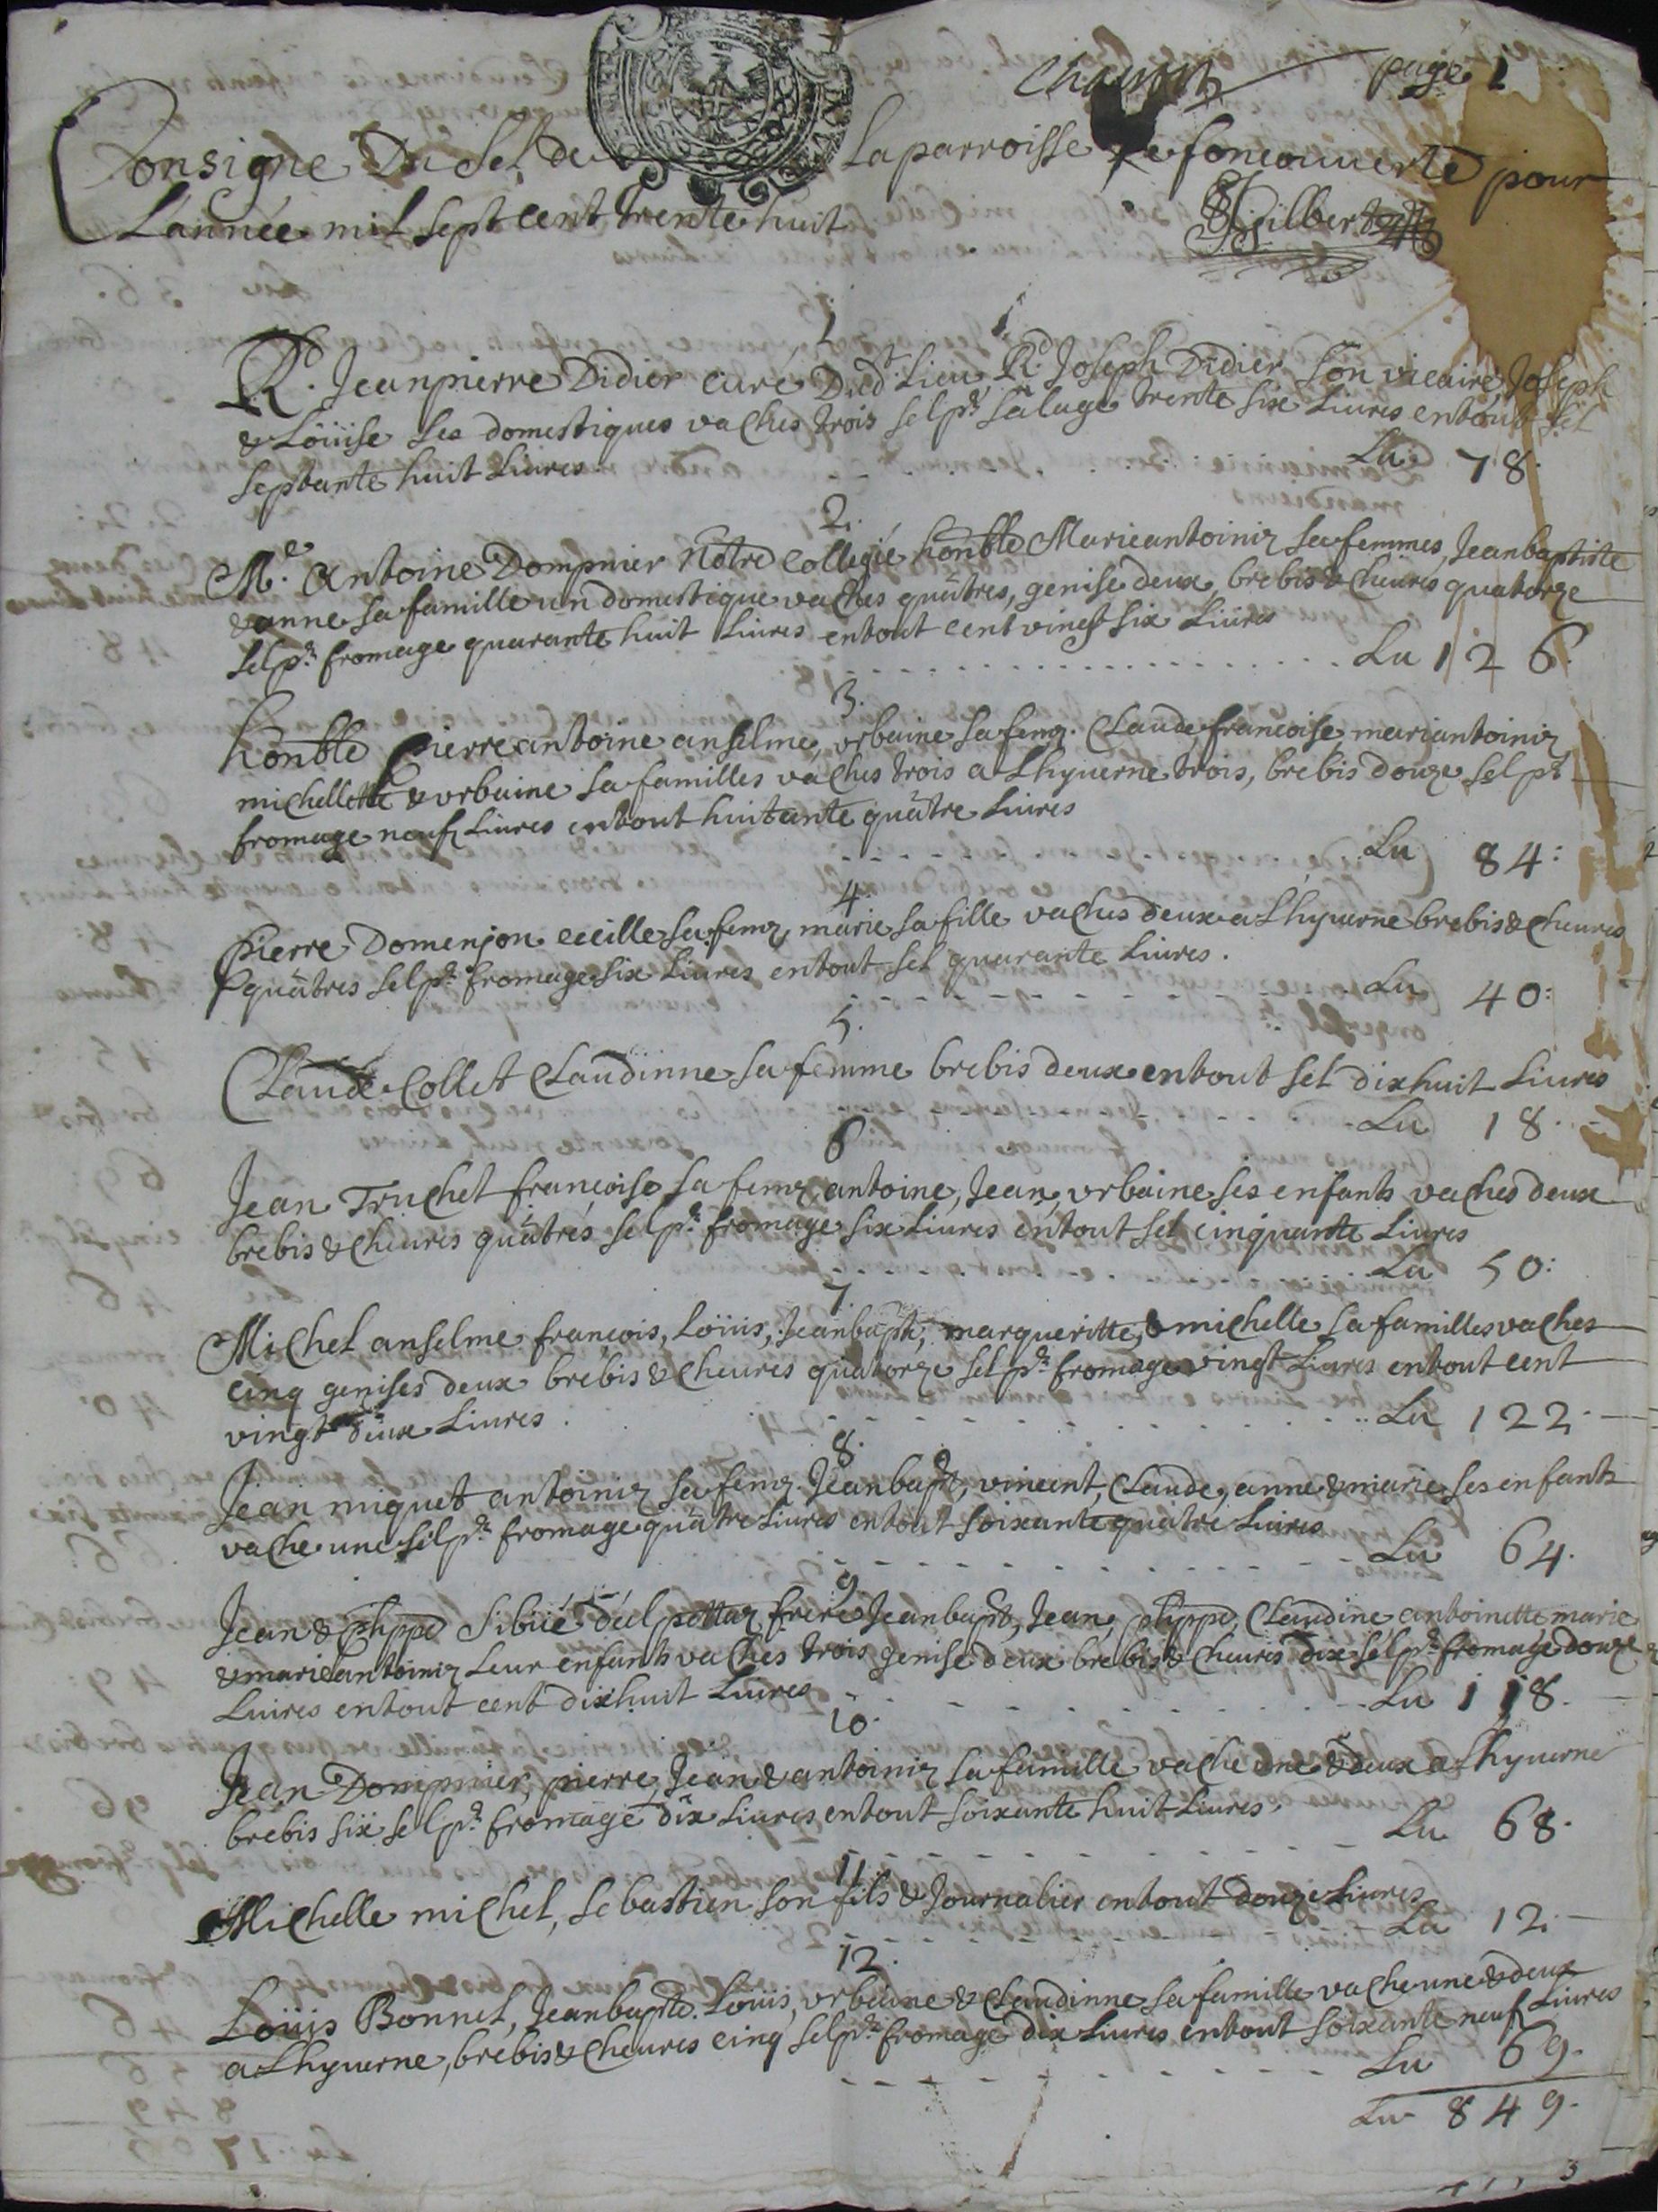 page 1
Consigne Du Sel de Laparroisse de foncouuerte pour
Lannée mil sept cent trente huit
Gilbert
1
Rd. Jeanpierre Didier curé Dudt. Lieu, Rd. Joseph Didier son vicaire, Joseph
& Loüise ses domestiques vaches trois sel pr. salage trente six Liures entout sel
septante huit Liures Lu 78.
2.
Me. Antoine Dompnier Notre Collegié honble Marieantoinie sa femme, Jeanbaptiste
& anne sa famille un domestique vaches quâtres, genise deux, brebis & cheures quatorze
sel pr. fromage quarante huit Liures entout cent vingt six Liures
Lu 126.
3.
honble Pierreantoine anselme, vrbaine sa feme. Claude francoise mariantoinie
michellette & vrbaine sa familles vaches trois a Lhyuerne trois, brebis douze sel pr.
fromage neuf Liures entout huitante quâtre Liures
Lu 84:
4.
Pierre Domenjon cecille sa feme, marie sa fille vaches deux a Lhyuerne brebis & cheures
quâtres sel pr. fromage six Liures entout sel quarante Liures.
Lu 40:
5.
Claude Collet Claudinne sa femme brebis deux entout sel dixhuit Liures
Lu 18.
6
Jean Truchet françoise sa feme, antoine, Jean, vrbaine ses enfants vaches deux
brebis & cheures quâtres sel pr. fromage six Liures entout sel cinquante Liures
Lu 50:
7
Michel anselme françois, Loüis, Jeanbapte, margueritte, & michelle sa familles vaches
cinq genises deux brebis & cheures quatorze sel pr. fromage vingt Liures entout cent
vingt deux Liures. Lu 122.
8.
Jean miquet antoinie sa feme. Jeanbapte, vincent, Claude, anne & marie ses enfants
vache une sel pr. fromage quâtre Liures entout soixante quâtre Liures
Lu 64.
9
Jean & phppe Sibüé frere Jeanbapte, Jean, phippe, Claudine antoinette marie
& marieantoinie Leur enfants vaches trois genise deux brebis & cheures dix sel pr. fromage douze
Liures entout cent dixhuit Liures Lu 118.
10.
Jean Dompnier, pierre, Jean & antoinie sa famille vache une & deux a Lhyuerne
brebis six sel pr. fromage dix Liures entout soixante huit Liures.
Lu 68.
11.
Michelle michel, sebastien son fils & Journalier entout douze Liures
Lu 12.
12.
Loüis Bonnel, Jeanbapte. Loüis, vrbaine & Claudinne sa famille vache une & deux
a Lhyuerne, brebis & cheures cinq sel pr. fromage dix Liures entout soixante neuf Liures
Lu 69.
Lu 849.
3